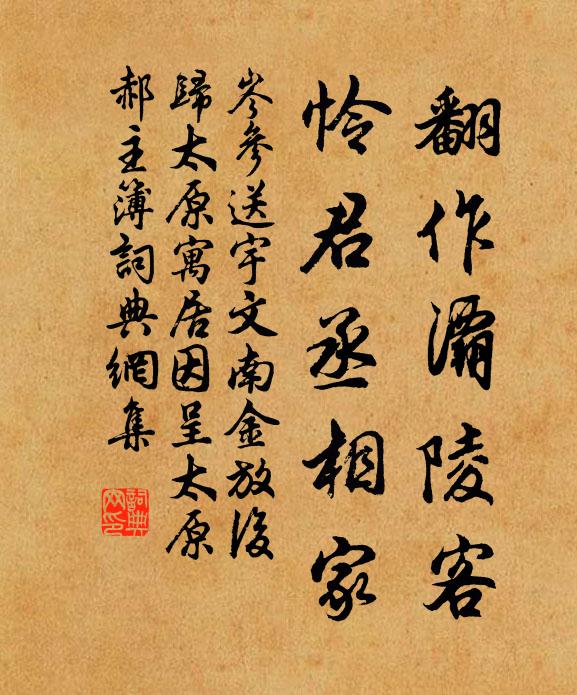 翻作灞陵客
怜君丞相家
岑參送宇文南金放後
歸太原寓居因呈太原
郝主簿詞典網集
詞典
网印